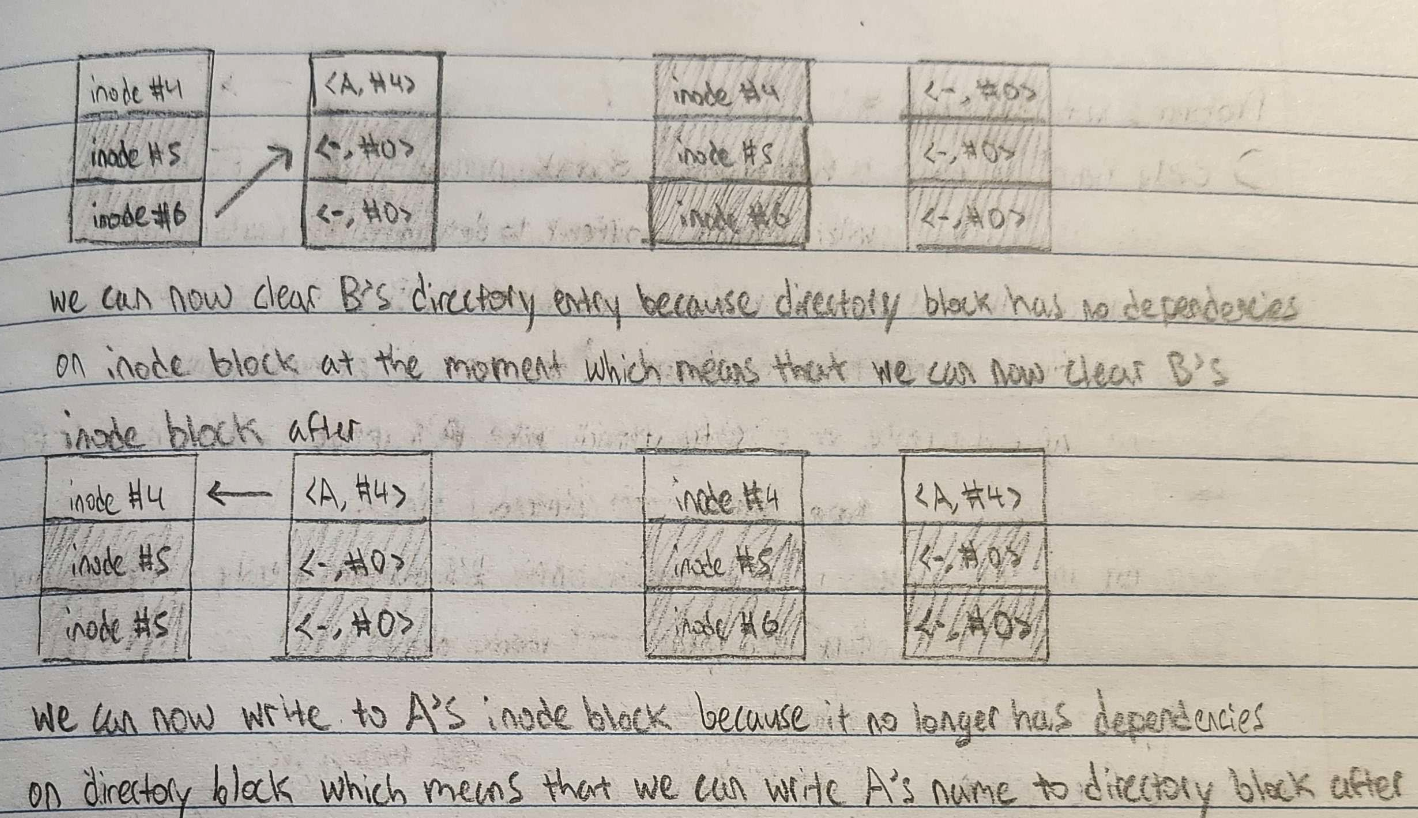 inode #4 <A, #4> inode #4 <-, #0>
inode #5 <-, #0> inode #5 <-, #0>
inode #6 <-, #0> inode #6 <-, #0>
we can now clear B's directory entry because directory block has no dependencies
on inode block at the moment which means that we can now clear B's
inode block after
inode #4 <A, #4> inode #4 <A, #4>
inode #5 <-, #0> inode #5 <-, #0>
inode #5 <-, #0> inode #6 <-, #0>
we can now write to A's inode block because it no longer has dependencies
on directory block which means that we can write A's name to directory block after